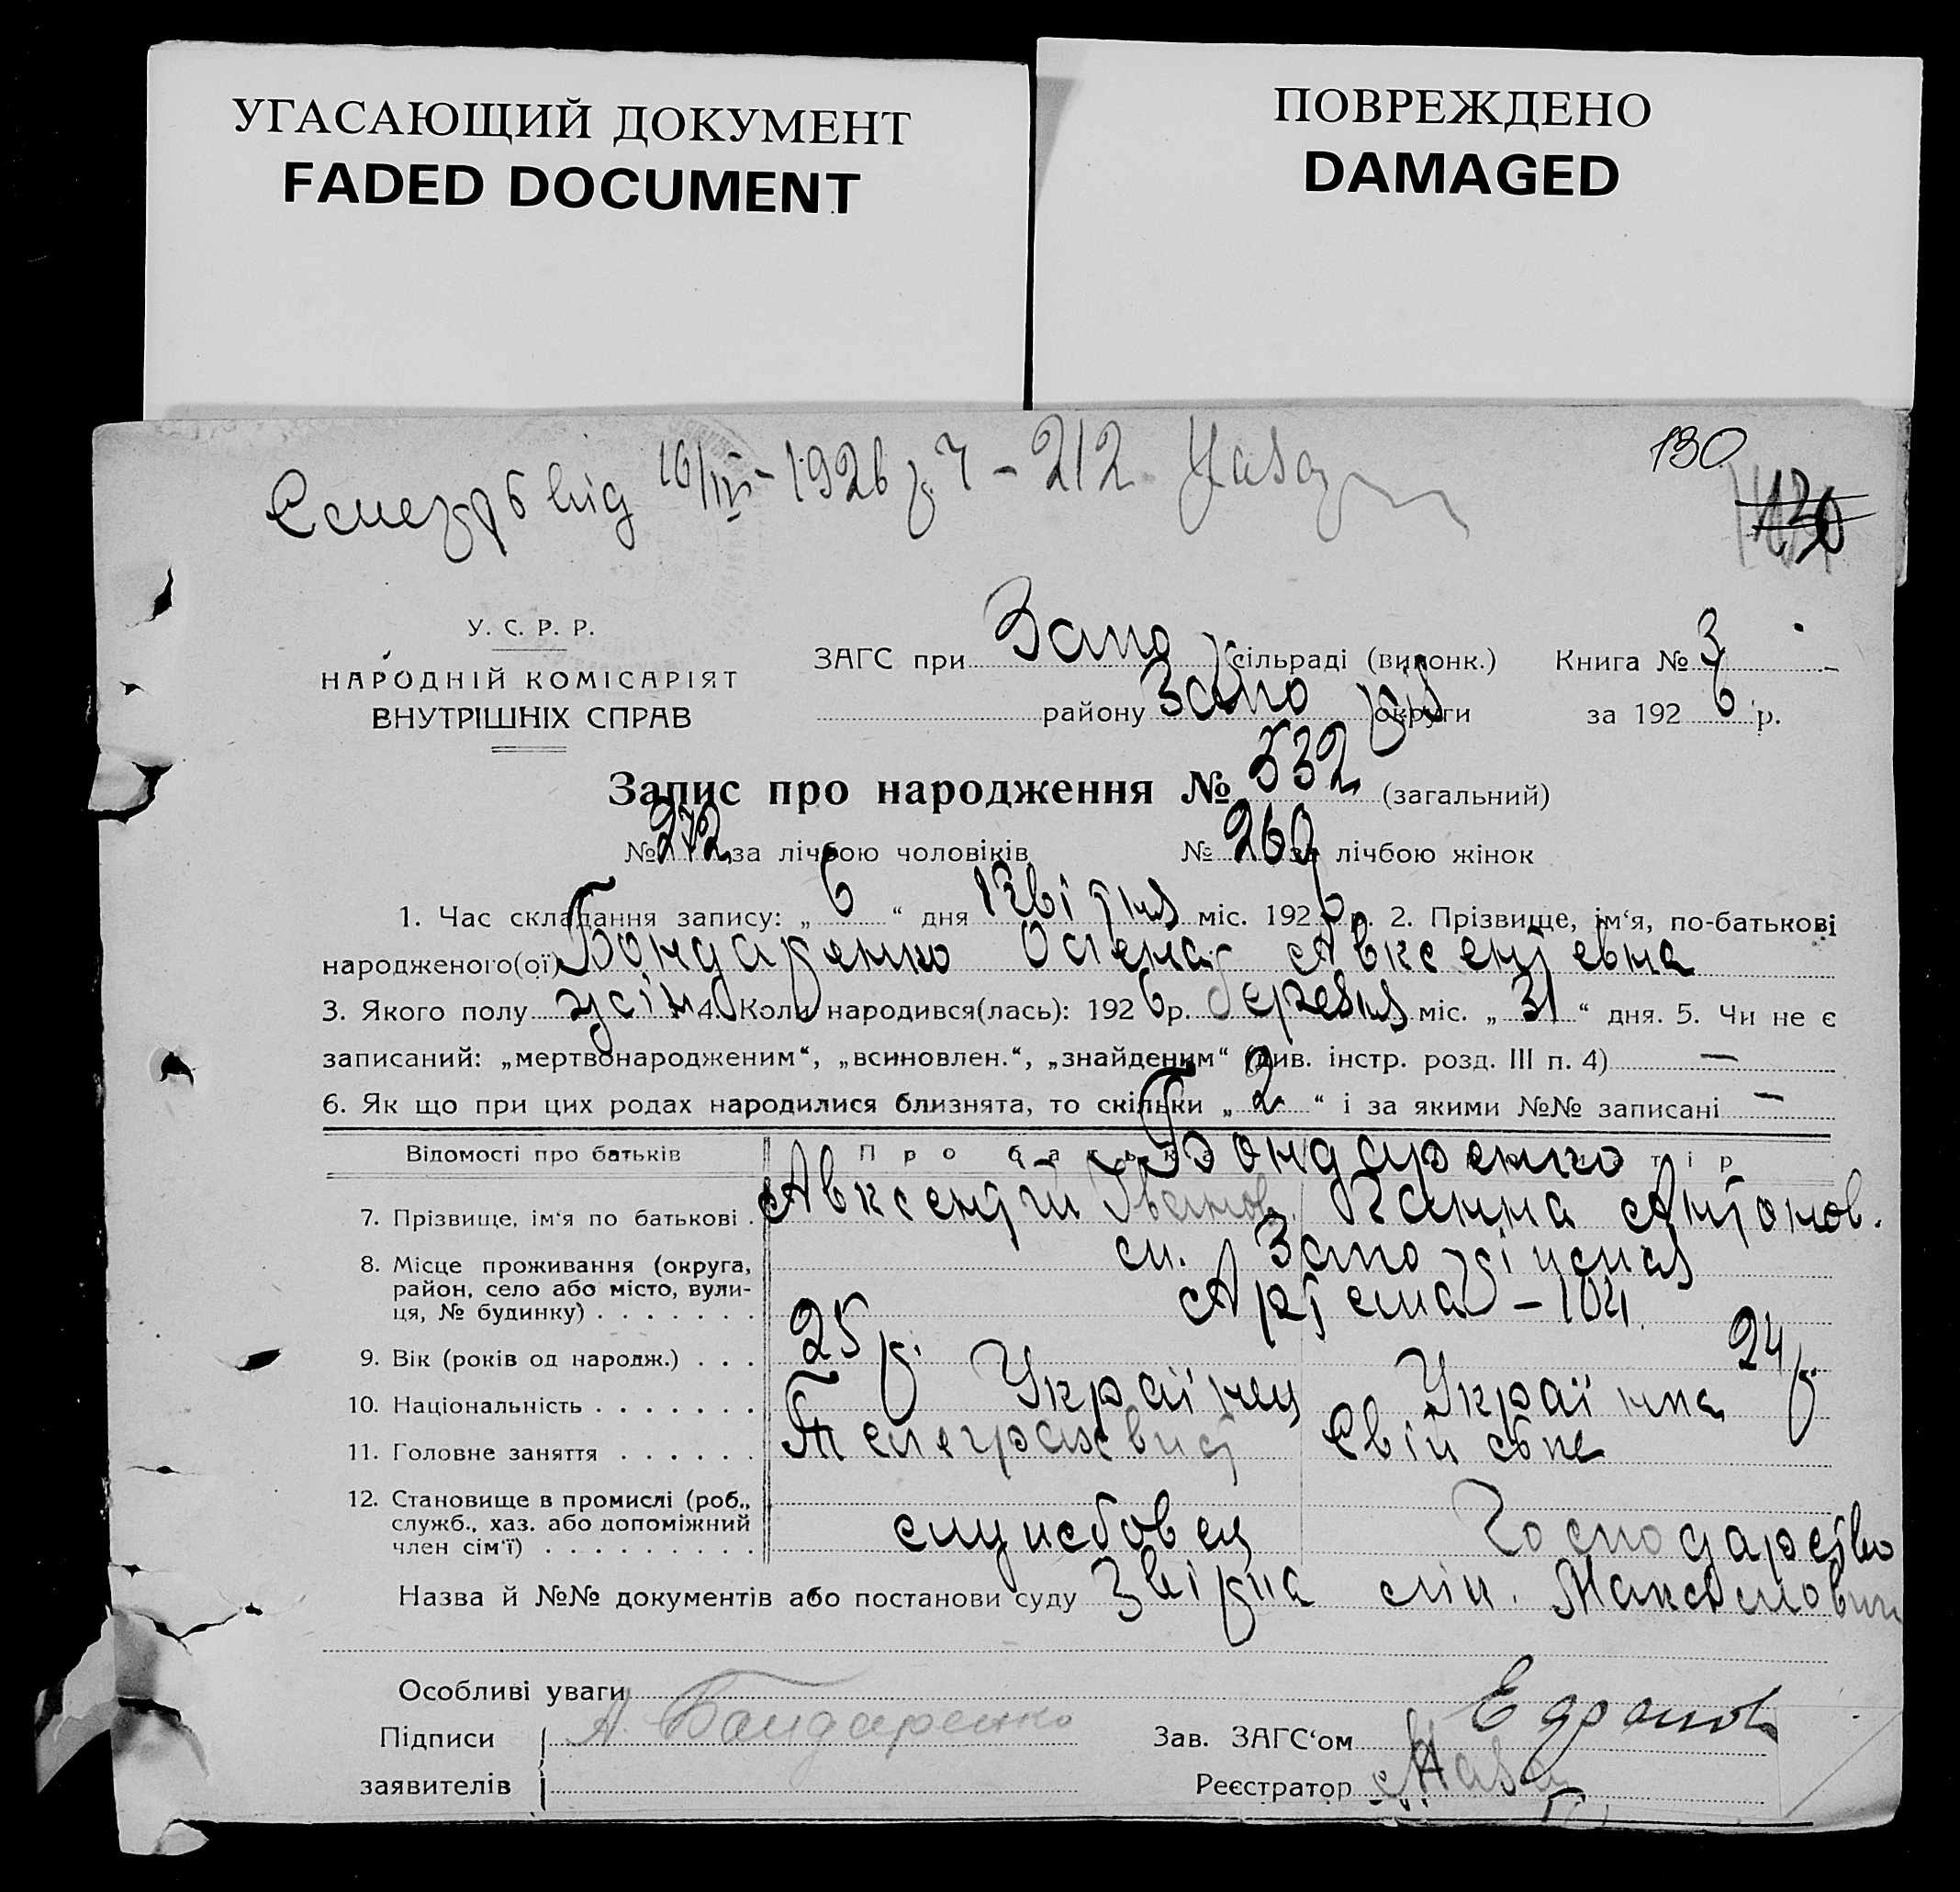 УГАСАЮЩИЙ ДОКУМЕНТ
FADED DOCUMENT
ПОВРЕЖДЕНО
DAMAGED
130
від 16/IV-1926 р Ч-212
130
У. С. Р. Р.
НАРОДНІЙ КОМІСАРІЯТ
ВНУТРІШНІХ СПРАВ
ЗАГС при Запо сільраді (виконк.) Книга № 3
району Запо округи за 1926 р.
Запис про народження № 532 (загальний)
№ 272 за лічбою чоловіків № 260 за лічбою жінок
1. Час складання запису: „6“ дня Квітня міс. 1926 р. 2. Прізвище, ім‘я, по-батькові
народженого(ої) Бондаренко Олена Авксентіевна
3. Якого полу жін 4. Коли народився(лась): 1926 р. березня міс. „31“ дня. 5. Чи не є
записаний: „мертвонародженим“, „всиновлен.“, „знайденим“ (див. інстр. розд. III п. 4) —
6. Як що при цих родах народилися близнята, то скільки „2“ і за якими №№ записані —
Відомості про батьків Про Бондаренко
7. Прізвище, ім‘я по батькові . Авксентій Іванов. Ганна Антонов.
8. Місце проживання (округа, м. Запоріжжя
район, село або місто, вули- Артема - 104
ця, № будинку) . . . . . . .
9. Вік (років од народж.) . . . 25 р. 24 р.
10. Національність . . . . . . . Українец Українка
11. Головне заняття . . . . . . Телеграхвист Свійське
12. Становище в промислі (роб.,
служб., хаз. або допоміжний службовец Господарство
член сім‘ї) . . . . . . . . .
Назва й №№ документів або постанови суду Звірка лік. Максимович
Особливі уваги
Підписи А. Бондаренко Зав. ЗАГС‘ом
заявителів Реєстратор